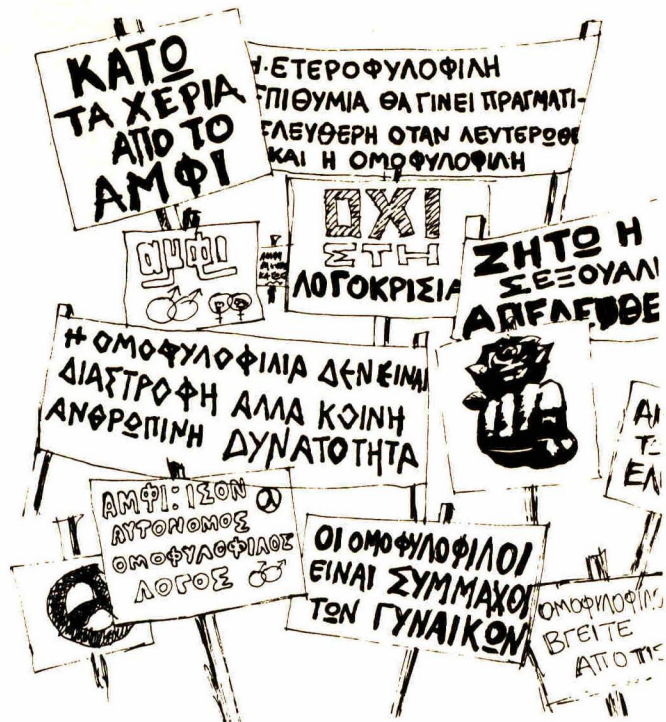 ΚΑΤΩ
ΤΑ ΧΕΡΙΑ
ΑΠΟ ΤΟ
ΑΜΦΙ
Η ΕΤΕΡΟΦΥΛΟΦΙΛΗ
ΕΠΙΘΥΜΙΑ ΘΑ ΓΙΝΕΙ ΠΡΑΓΜΑΤΙ-
ΕΛΕΥΘΕΡΗ ΟΤΑΝ ΛΕΥΤΕΡΩΘΕ
ΚΑΙ Η ΟΜΟΦΥΛΟΦΙΛΗ
αμφι
ΟΧΙ
ΣΤΗ
ΛΟΓΟΚΡΙΣΙΑ
ΖΗΤΩ Η
ΣΕΞΟΥΑΛΙ
ΑΠΕΛΕΥΘΕ
Η ΟΜΟΦΥΛΟΦΙΛΙΑ ΔΕΝ ΕΙΝΑΙ
ΔΙΑΣΤΡΟΦΗ ΑΛΛΑ ΚΟΙΝΗ
ΑΝΘΡΩΠΙΝΗ ΔΥΝΑΤΟΤΗΤΑ
ΑΜΦΙ: ΙΣΟΝ
ΑΥΤΟΝΟΜΟΣ
ΟΜΟΦΥΛΟΦΙΛΟΣ
ΛΟΓΟΣ
ΟΙ ΟΜΟΦΥΛΟΦΙΛΟΙ
ΕΙΝΑΙ ΣΥΜΜΑΧΟΙ
ΤΩΝ ΓΥΝΑΙΚΩΝ
ΟΜΟΦΥΛΟΦΙΛΟ
ΒΓΕΙΤΕ
ΑΠΟ ΤΙΣ